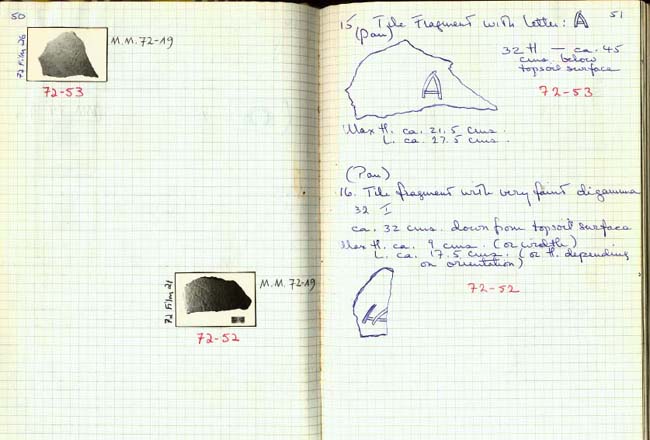 50
72 Film 26
M.M. 72-19
72-53
72 Film 21
M.M. 72-19
72-52
51
15. Tile Fragment with Letter: A
(Pan)
32 H – ca. 45
cms. below
topsoil surface
72-53
A
Max H. ca. 21.5 cms.
L. ca. 27.5 cms.
(Pan)
16. Tile fragment with very faint digamma
32 I
ca. 32 cms. down from topsoil surface
Max H. ca. 9 cms. (or width)
L. ca. 17.5 cms. (or H. depending
on orientation)
72-52